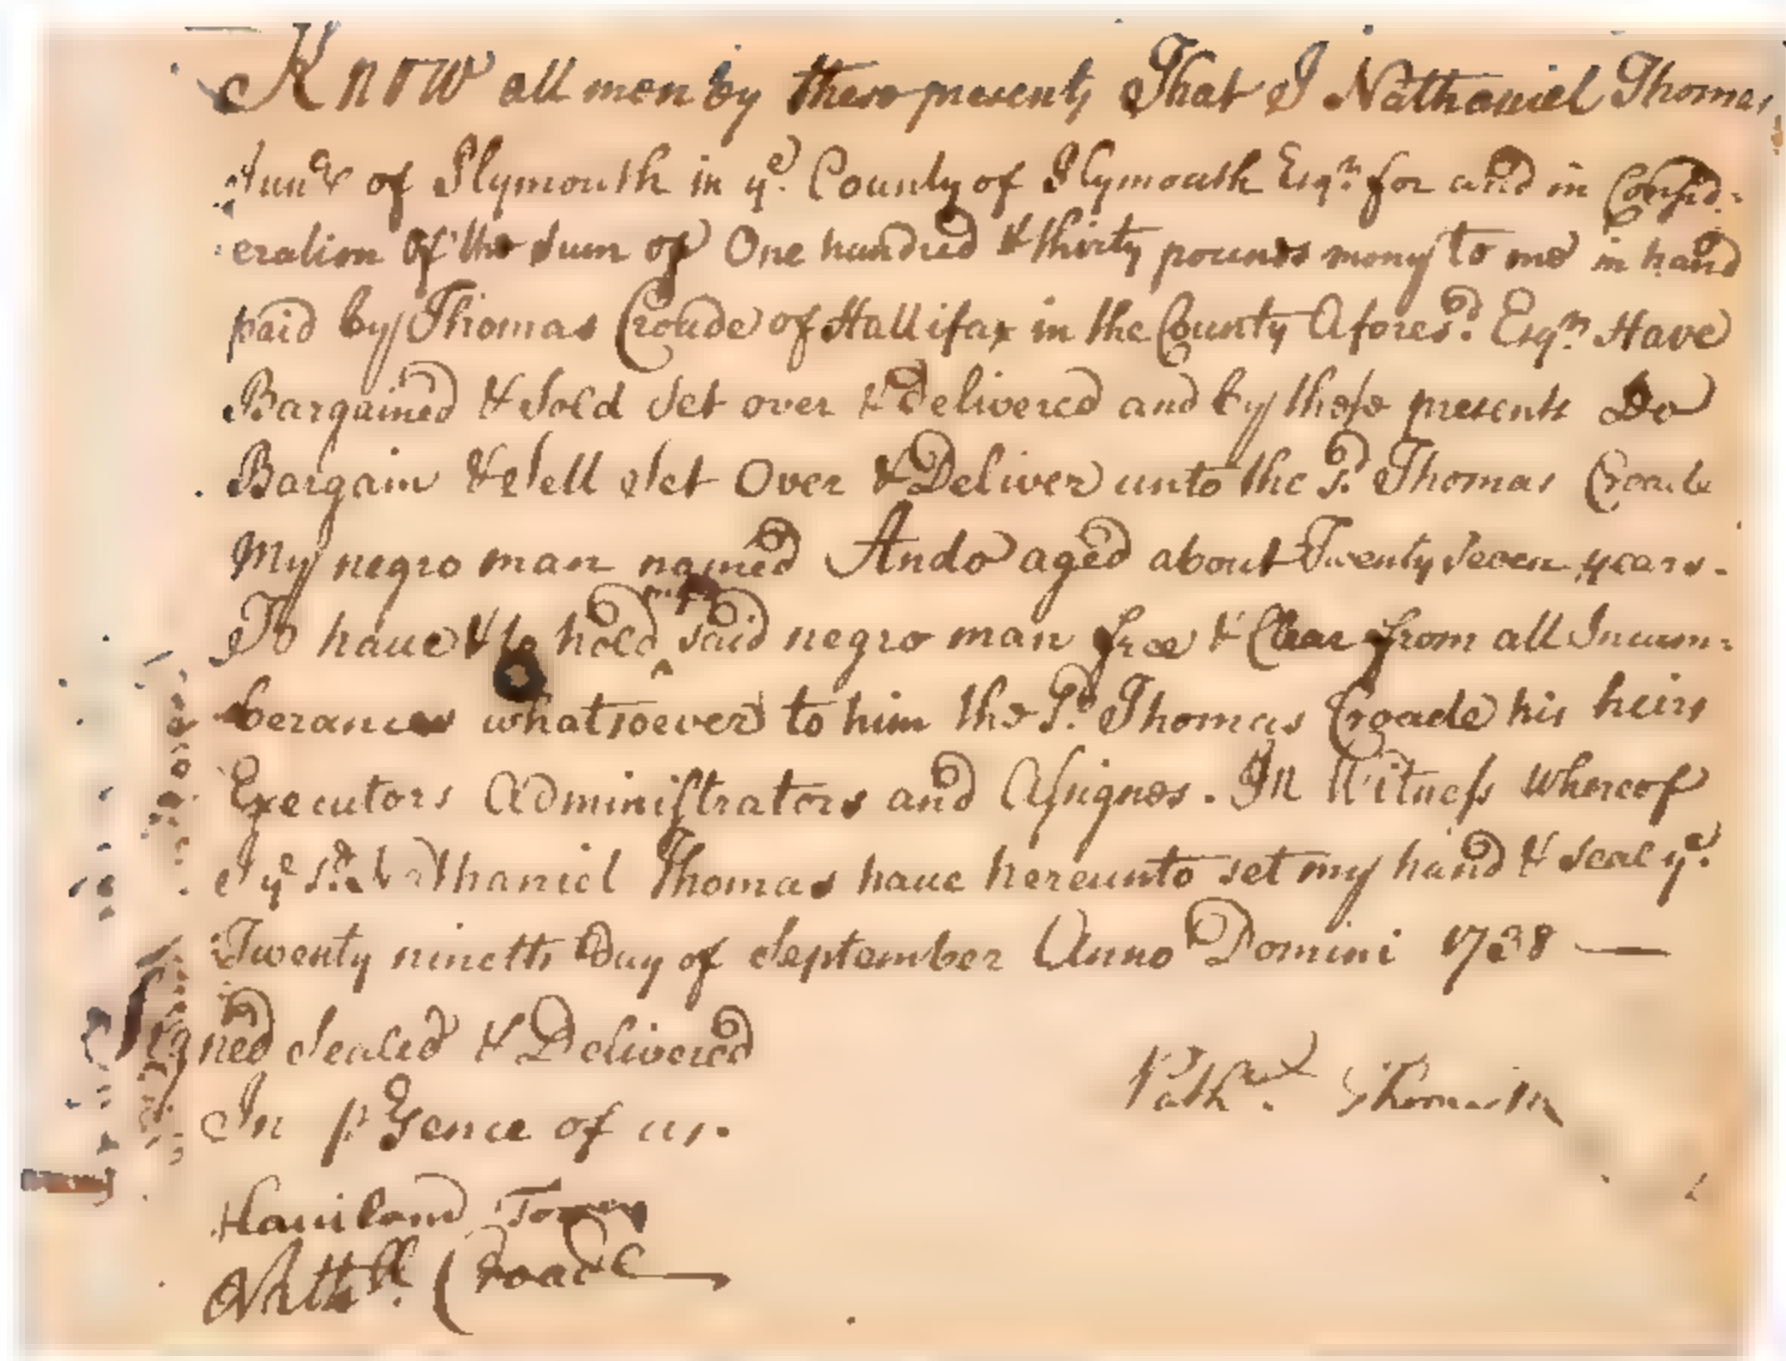 Know all men by these presents That I Nathaniel Thomas
Junr of Plymouth in ye. County of Plymouth Esqr. for and in Consid-
eration Of the Sum of One hundred & thirty pounds mony to me in hand
paid by Thomas Croade of Hallifax in the County Aforesd. Esqr. Have
Bargained & Sold Set over & Delivered and by these presents Do
Bargain & Sell Set Over & Deliver unto the Sd. Thomas Croade
My negro man named Ando aged about Twenty Seven years.
To have & to hold said negro man free & Clear from all Incum-
berances whatsoever to him the Sd. Thomas Croade his heirs
Executors Administrators and Assignes. In Witness whereof
I ye sd. Nathaniel Thomas have hereunto set my hand & seal ye.
Twenty nineth Day of September Anno Domini 1738 —
Signed Sealed & Delivered
In psence of us.
Nathll. Thomas Jn
Haviland Torrey
Nathll. Croade